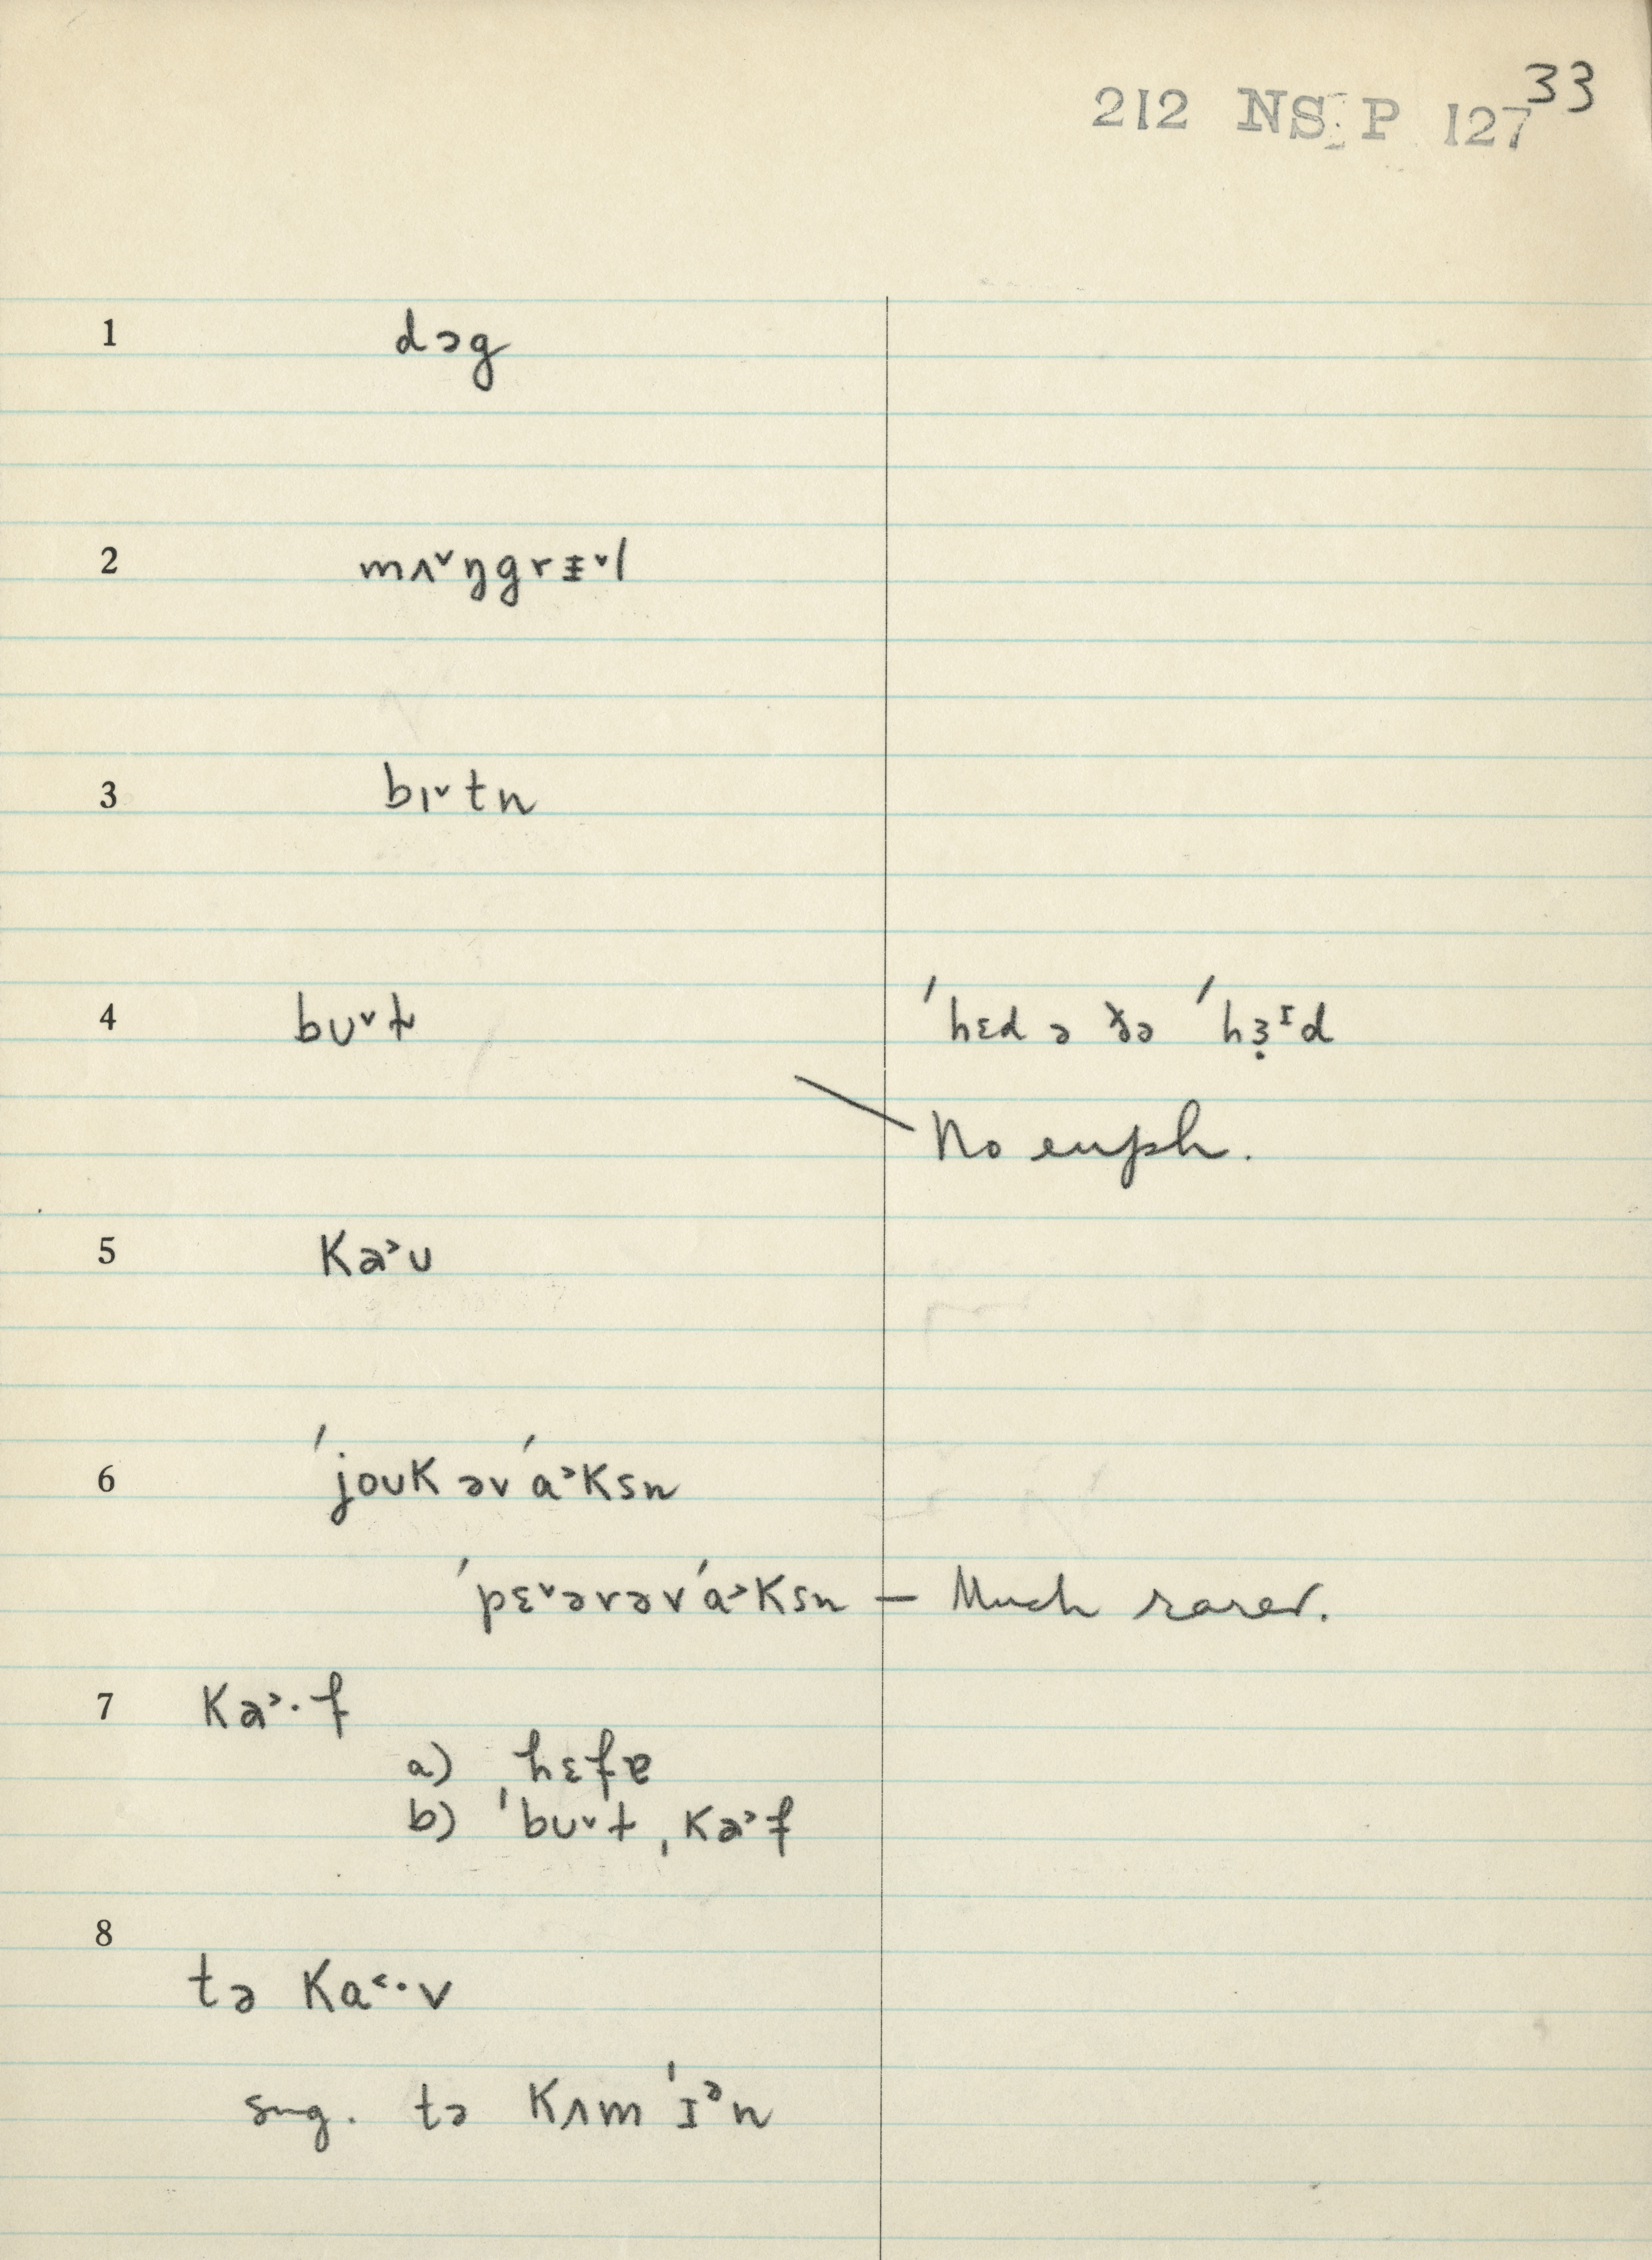 33
212 NS P 127
1 dɔg
2 mʌ˅ŋgrɪ̵˅l
3 bɪ˅tn
4 bʊ˅ɫ ˈhɛd ə ðə ˈhɜ̣ᶦd
No euph.
5 Ka˃ʊ
6 ˈjoʊK əv ˈa˃Ksn
ˈpɛ˅ərəv ˈa˃Ksn — Much rarer.
7 Ka˃·f
a) hɛfɐ
b) ˈbʊ˅ɫ ˌKa˃f
8
tə Ka˂·v
sug. tə Kʌm ˈɪᵊn